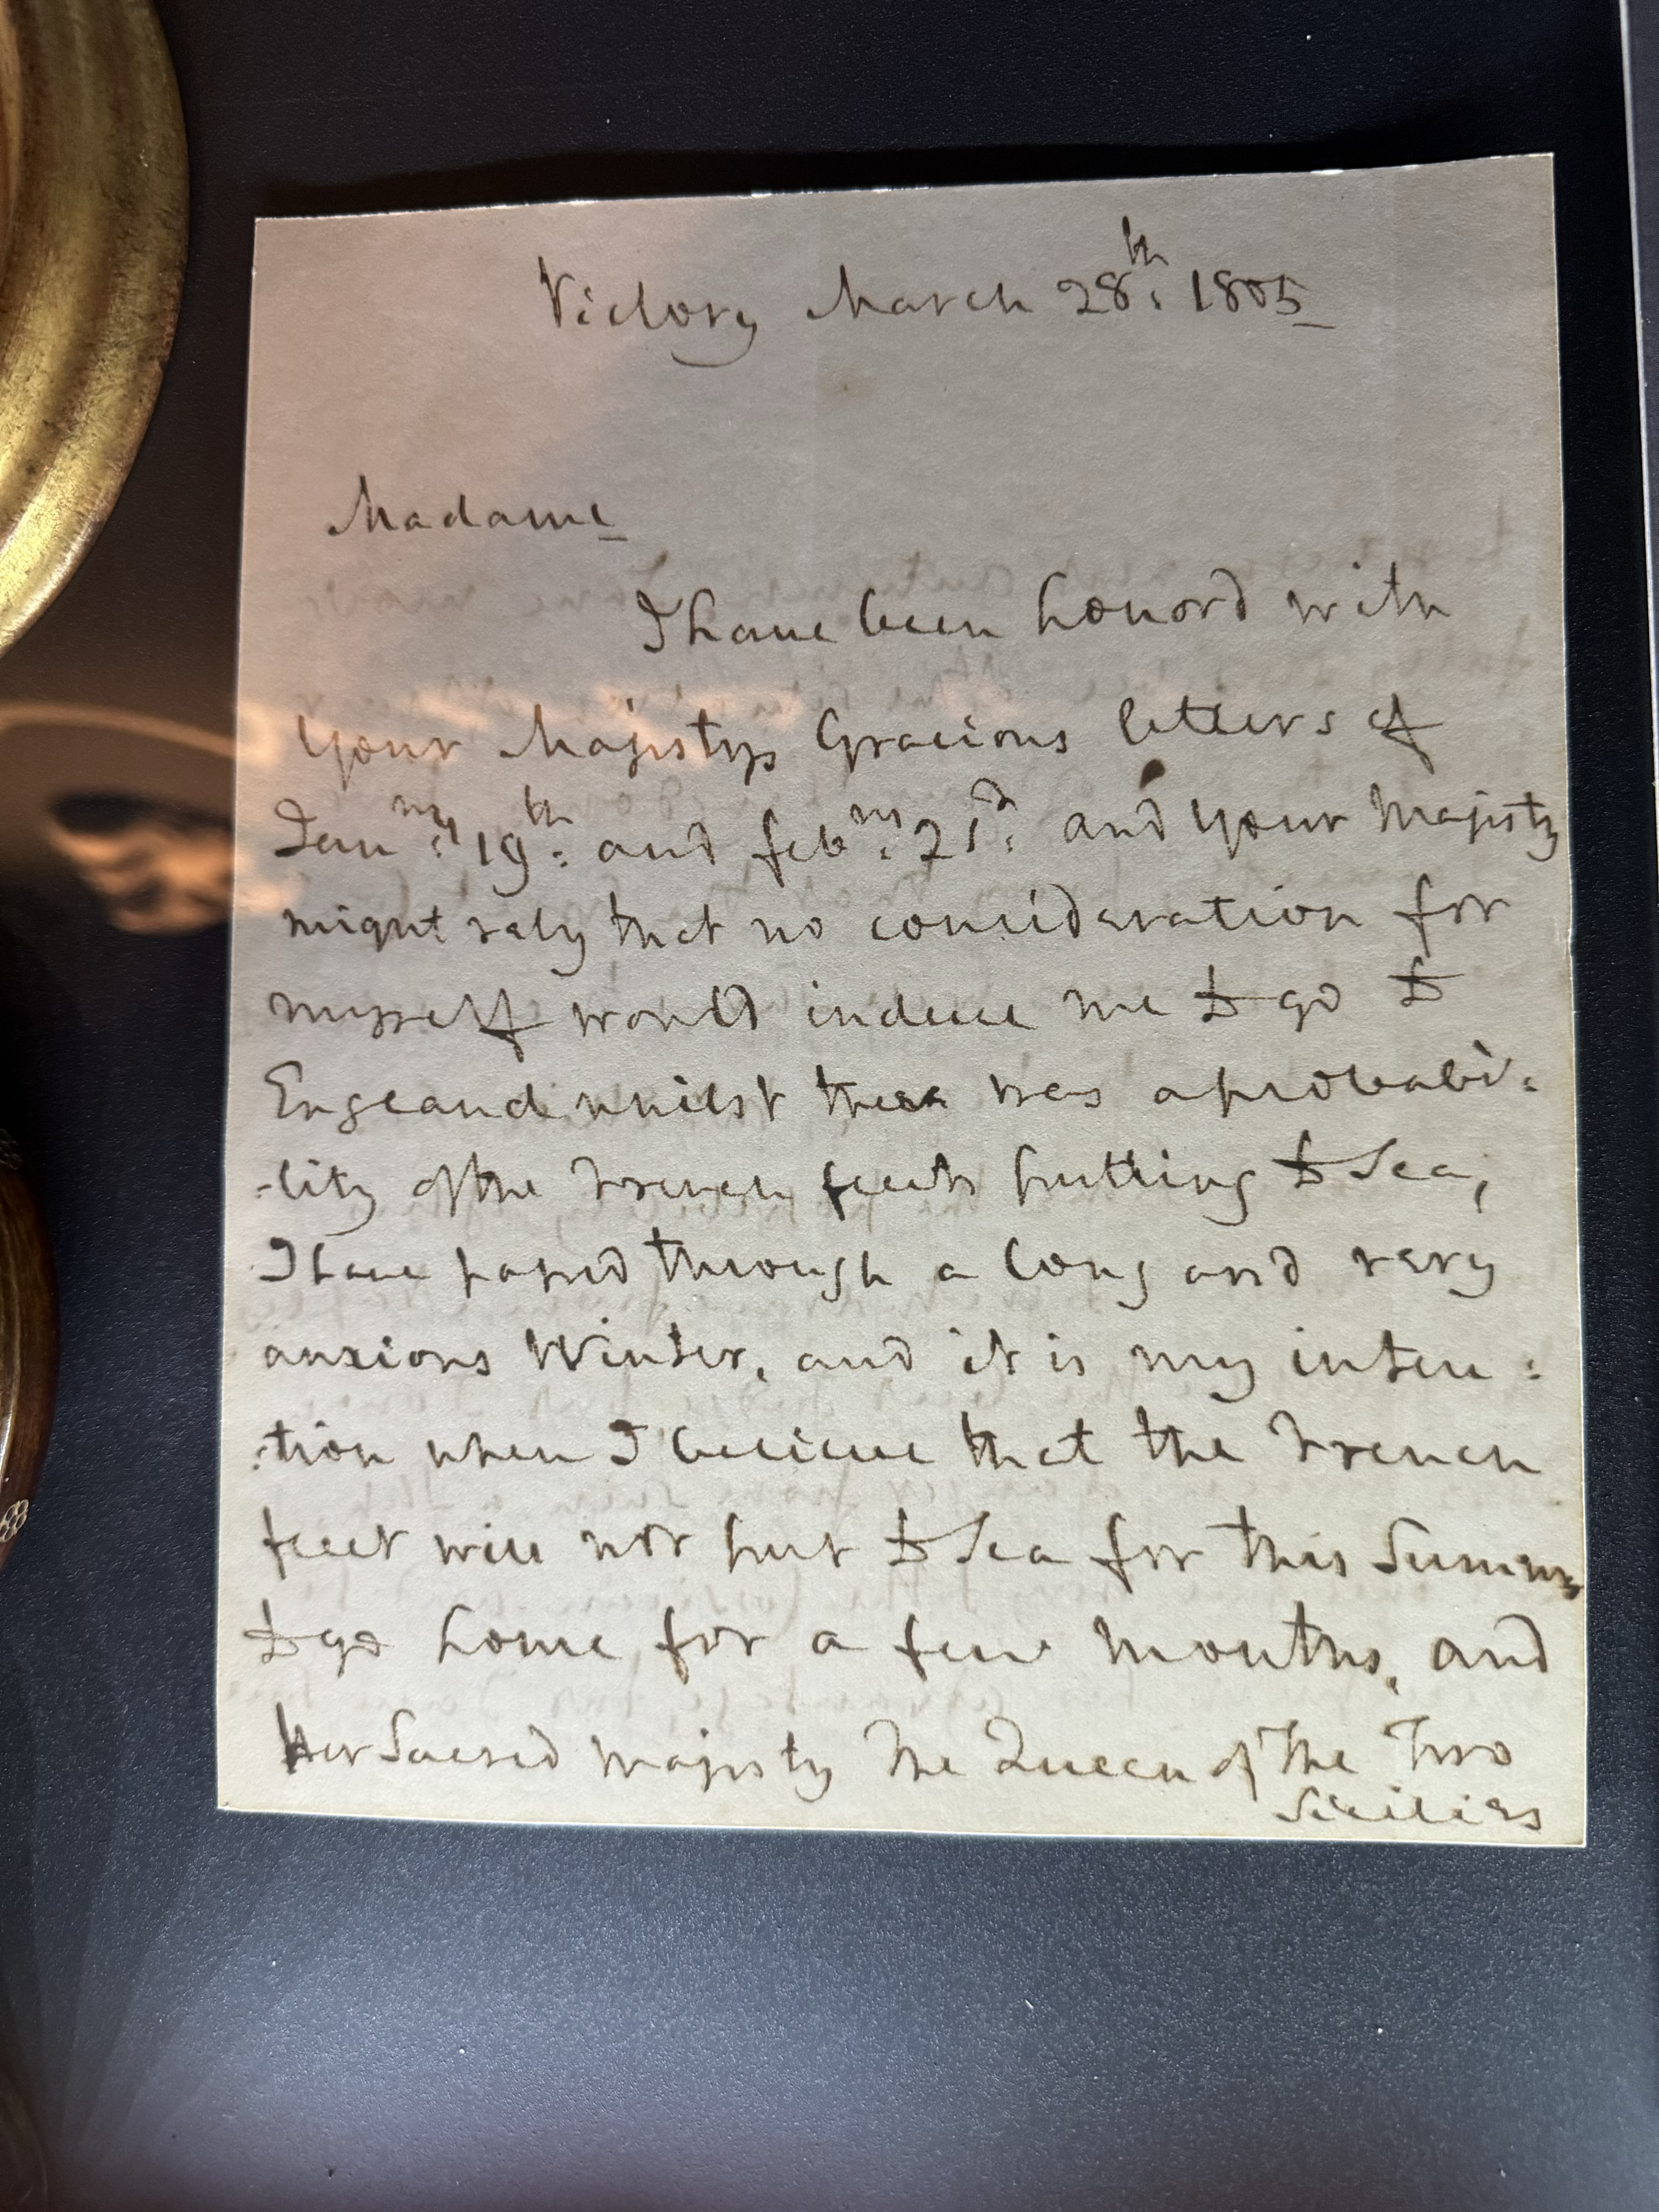 Victory March 28th: 1805
Madame
I have been honord with
Your Majestys Gracious letters of
Janry: 19th: and febry: 21st: and Your Majesty
might rely that no consideration for
myself would induce me to go to
England whilst there was a probabi:
-lity of the French fleets putting to Sea,
I have passed through a long and very
anxious Winter, and it is my inten:
:tion when I believe that the French
fleet will not put to Sea for this Summer
to go home for a few Months, and
Her Sacred Majesty The Queen of The Two
Sicilies